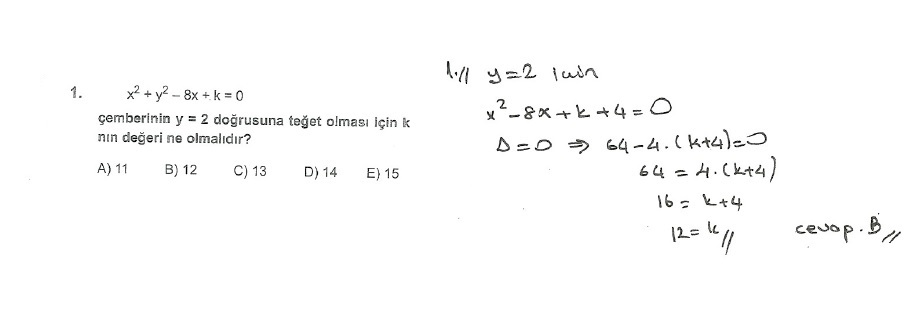 1. x² + y² – 8x + k = 0
çemberinin y = 2 doğrusuna teğet olması için k
nın değeri ne olmalıdır?
A) 11 B) 12 C) 13 D) 14 E) 15
1.// y=2 için
x²-8x+k+4=0
Δ=0 ⇒ 64-4.(k+4)=0
64 = 4.(k+4)
16 = k+4
12=k//
cevap.B//